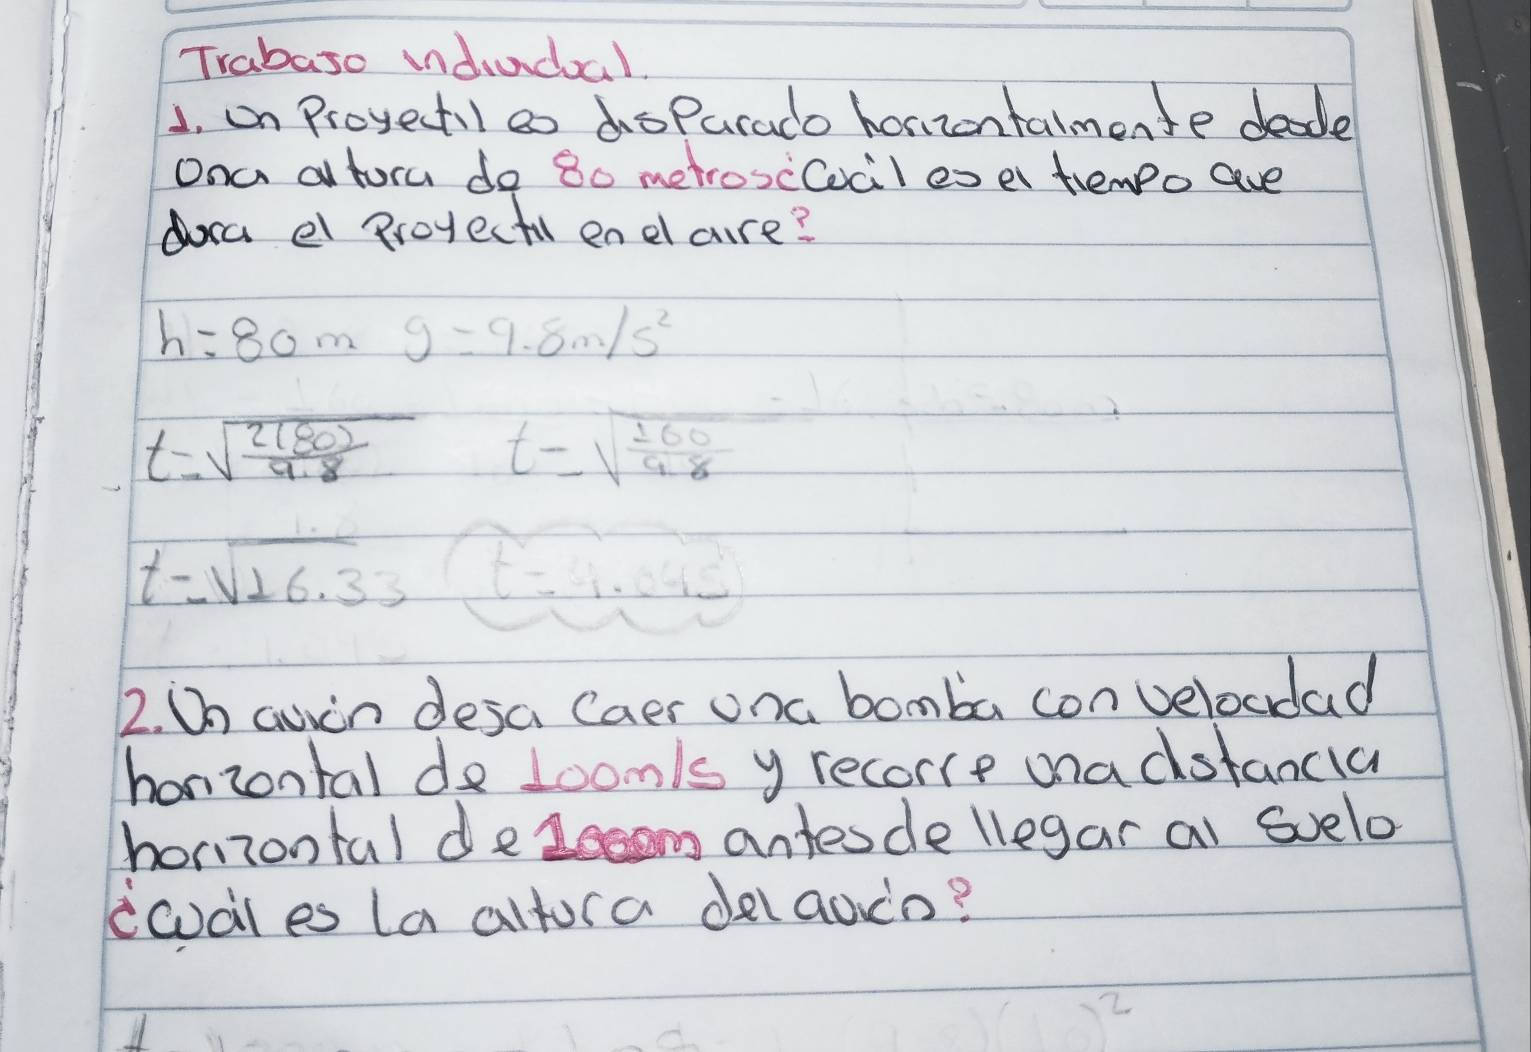 Trabajo individual.
1. Un Proyectil es disparado horizontalmente desde
Una altura de 80 metros¿Cuál es el tiempo que
dura el Proyectil en el aire?
h=80m g=9.8m/s²
t=√2(80)/9.8 t=√160/9.8
t=√16.33 t=4.04s
2. Un avión deja caer una bomba con velocidad
horizontal de 100m/s y recorre una distancia
horizontal de 1000m antes de llegar al suelo
¿cuál es la altura del avión?